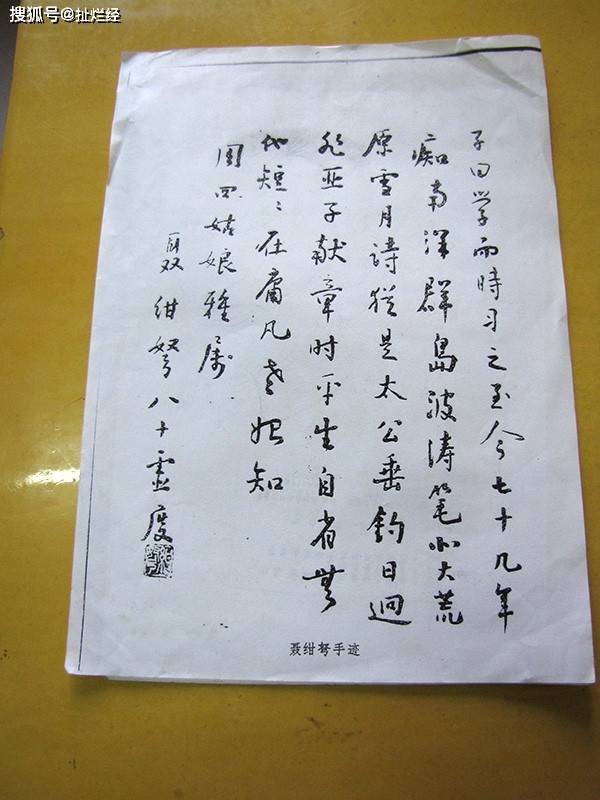 搜狐号@扯烂经
子曰学而時习之至今七十几年
痴南洋群島波涛笔北大荒
原雪月詩犹是太公垂釣日迥
非亚子献章时平生自省無
他短〻在庸凡老始知
周四姑娘雅属
聂绀弩八十虚度
聂绀弩手迹